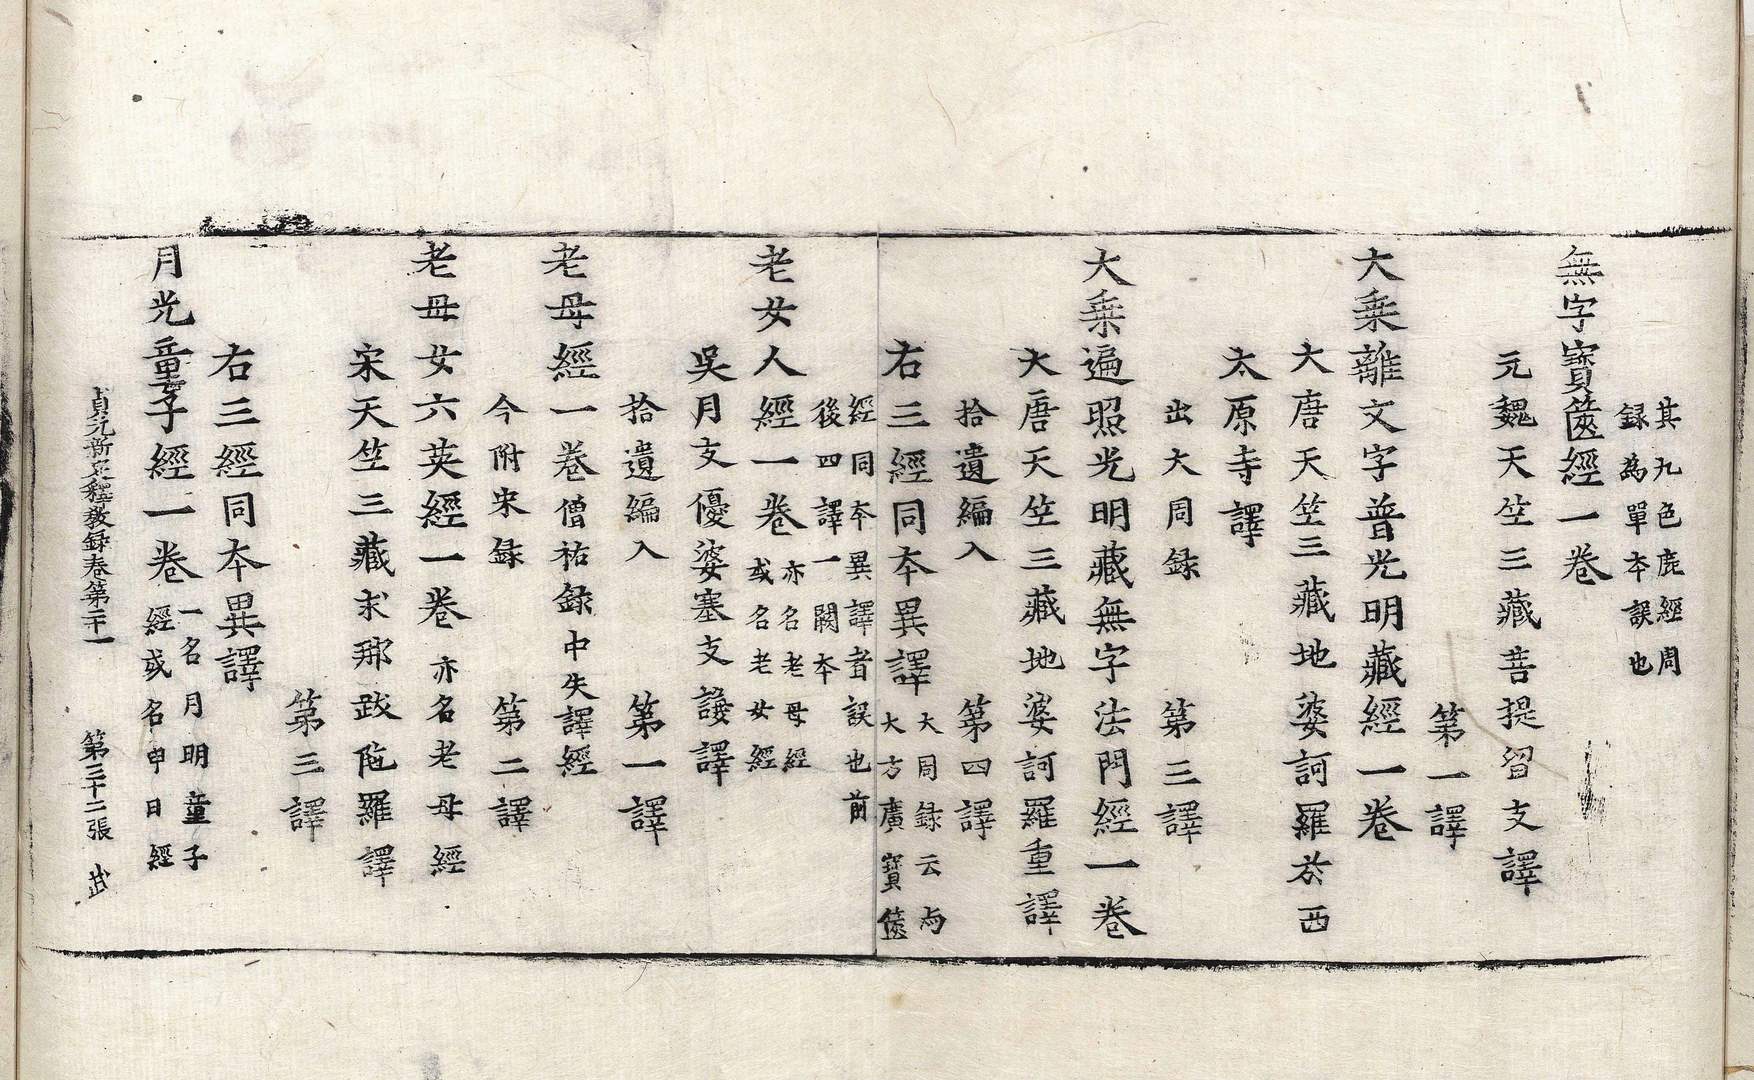 其九色鹿經周
録為單本誤也
無字寶篋經一卷
元魏天竺三藏菩提留支譯
第一譯
大乗離文字普光明藏經一卷
大唐天竺三藏地婆訶羅於西
太原寺譯
出大周録
第三譯
大乗遍照光明藏無字法門經一卷
大唐天竺三藏地婆訶羅重譯
拾遺編入
第四譯
右三經同本異譯
大周録云與
大方廣寶篋
經同本異譯者誤也前
後四譯一闕本
老女人經一卷
亦名老母經
或名老女經
吳月支優婆塞支謙譯
拾遺編入
第一譯
老母經一卷僧祐録中失譯經
今附宋録
第二譯
老母女六英經一卷亦名老母經
宋天竺三藏求那跋陁羅譯
第三譯
右三經同本異譯
月光童子經一卷
一名月明童子
經或名申日經
貞元新定釋教録卷第二十一
第三十二張